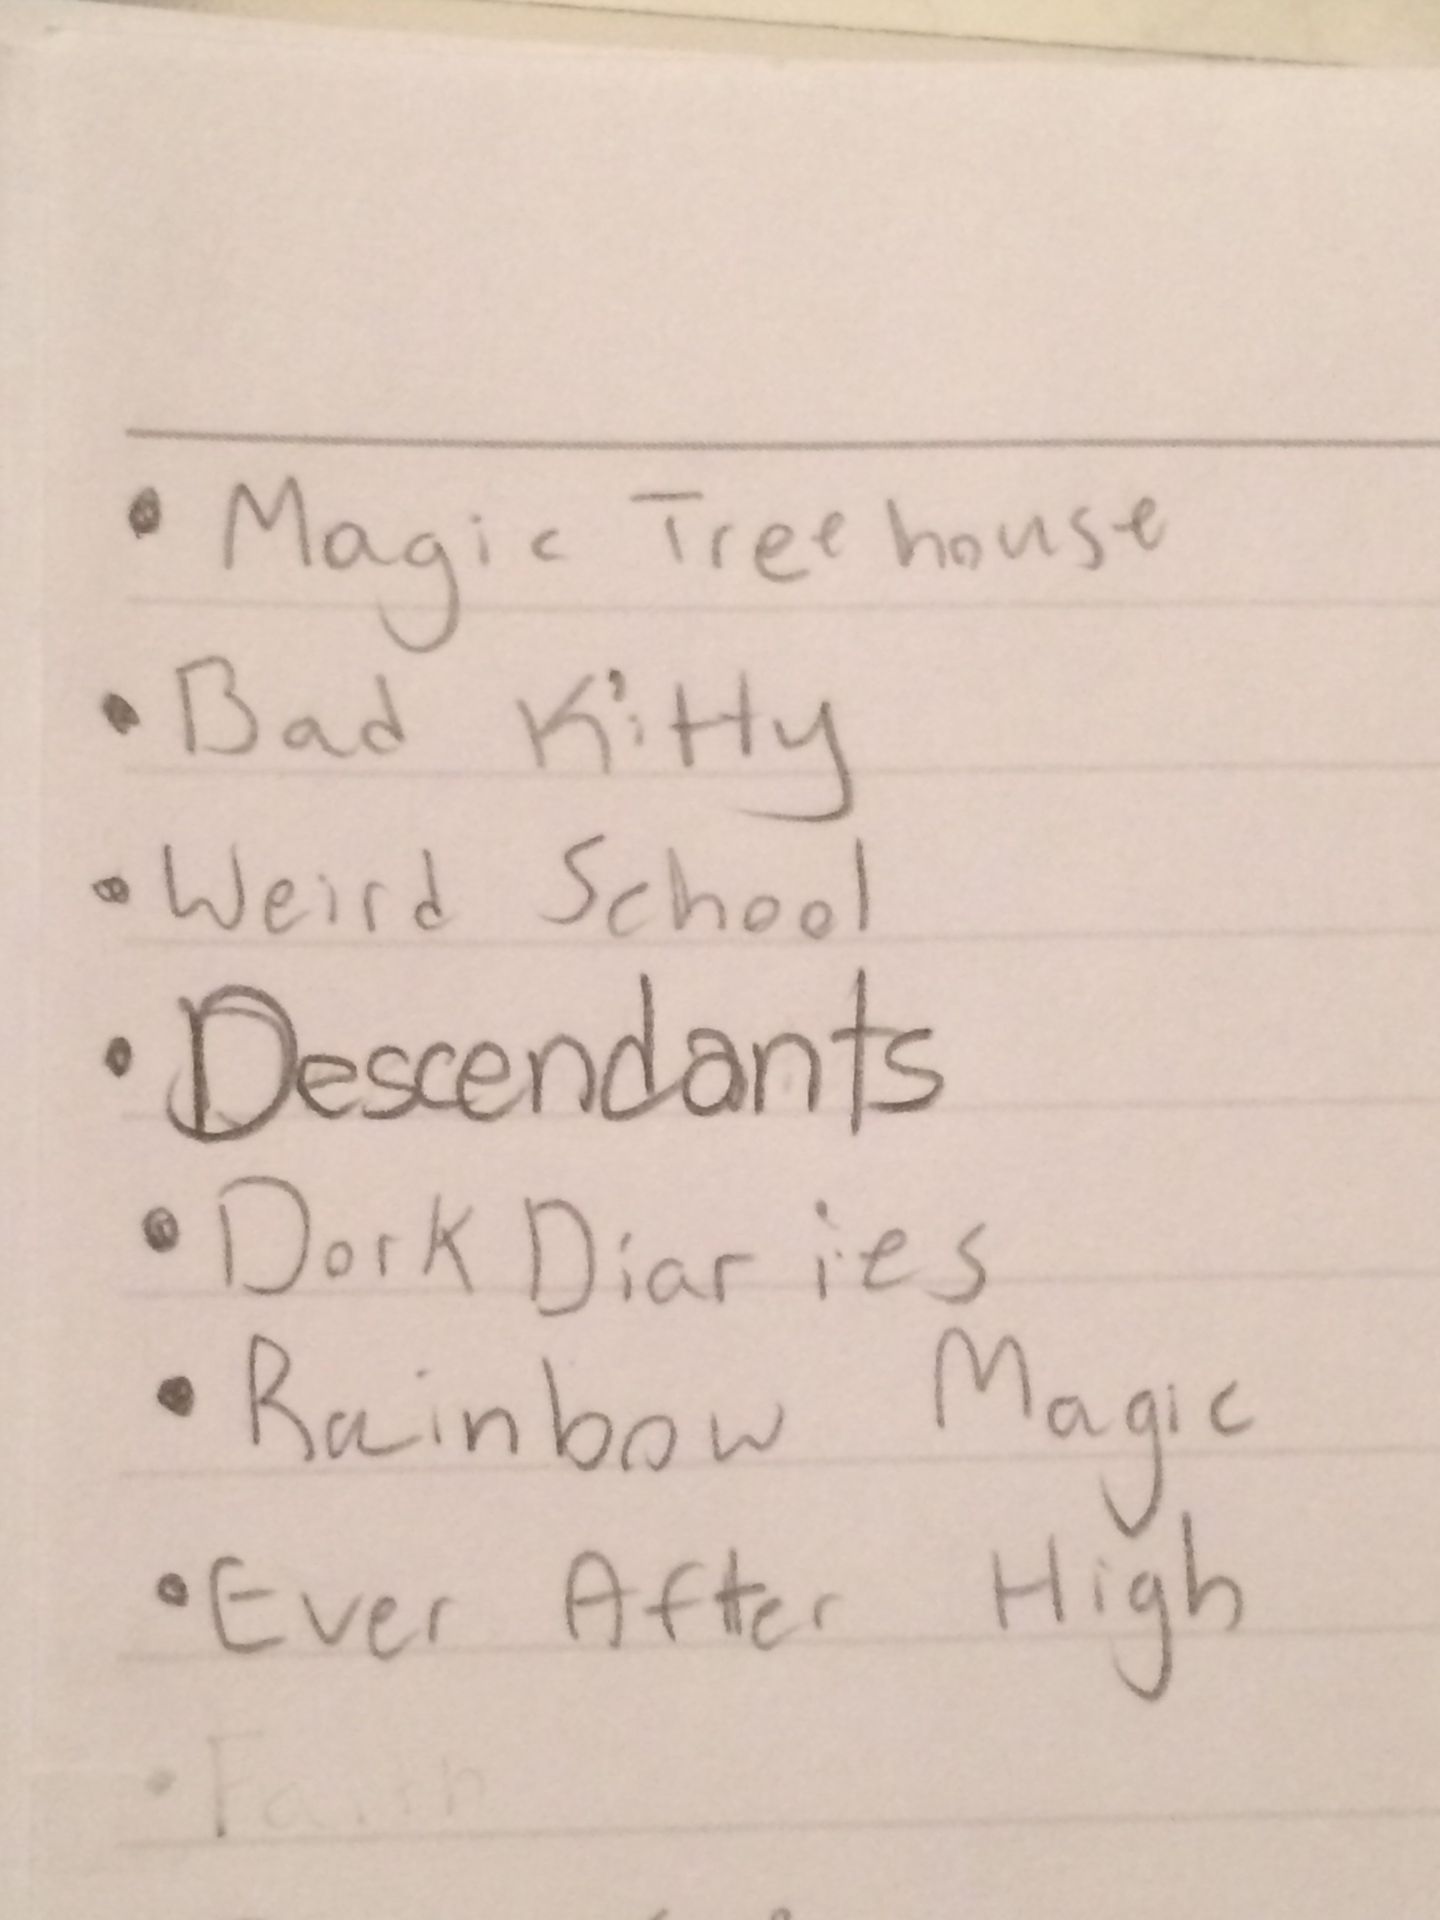 • Magic Treehouse
• Bad Kitty
• Weird School
• Descendants
• Dork Diaries
• Rainbow Magic
• Ever After High
• Faith